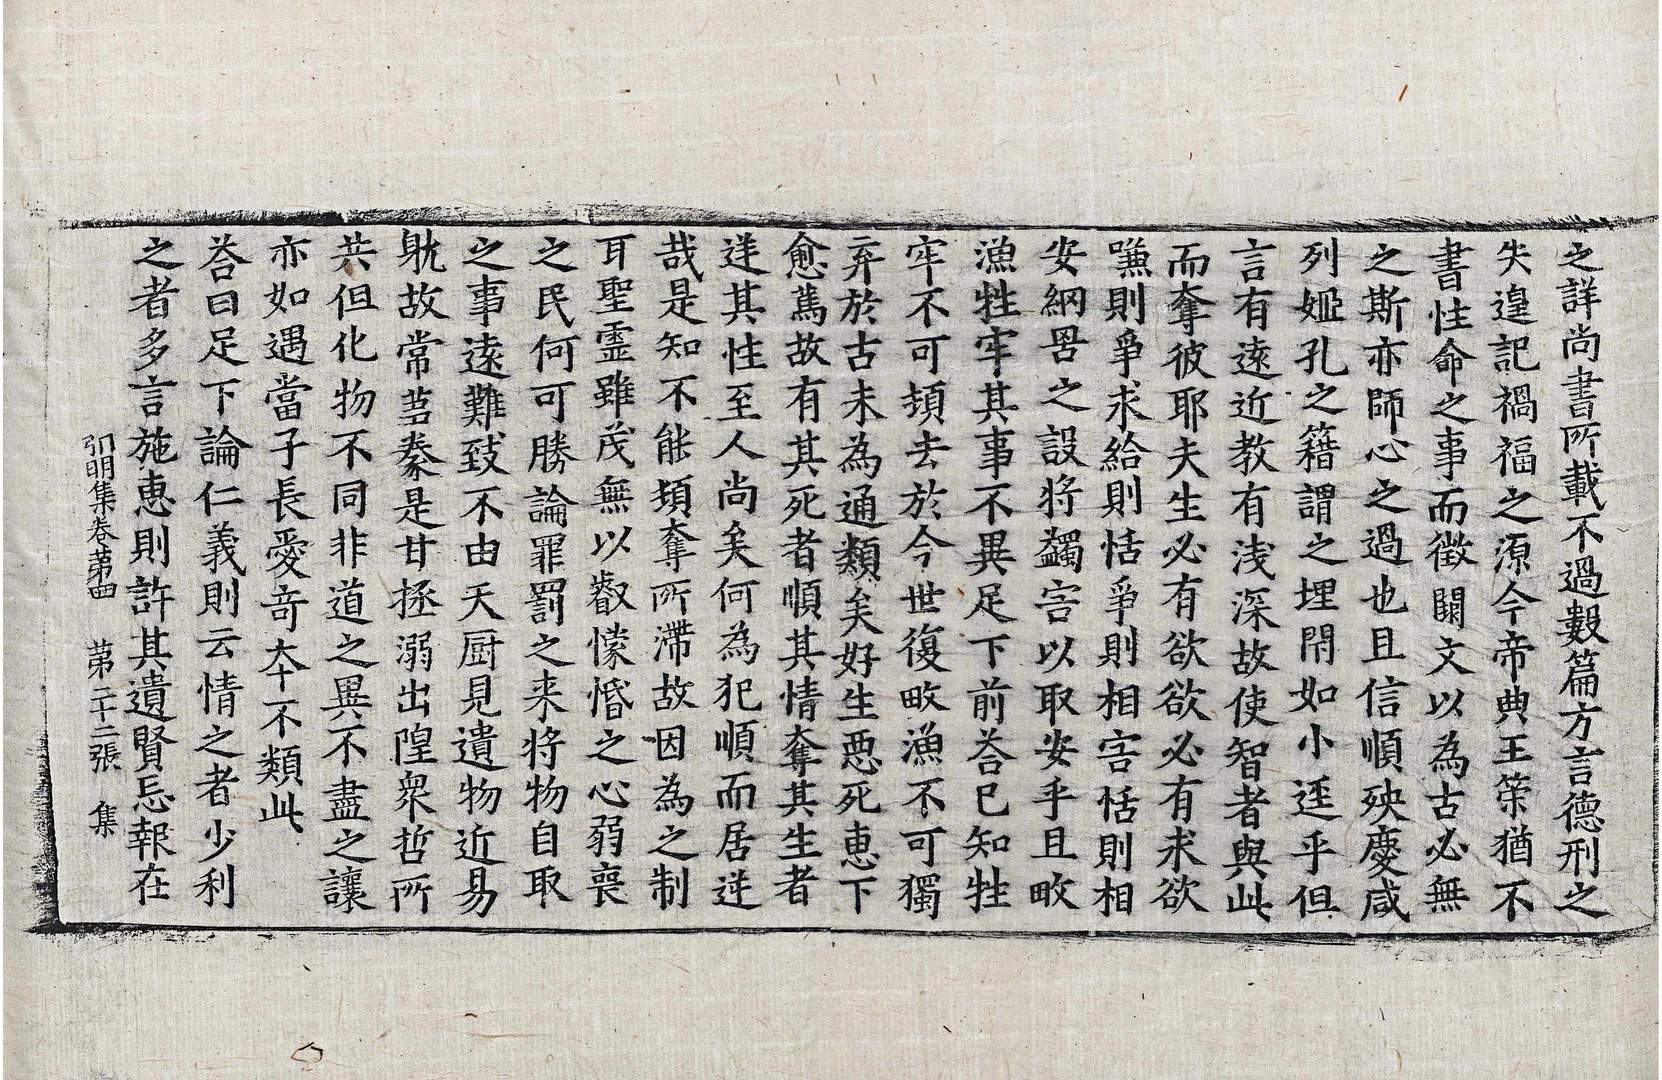 之詳尚書所載不過數篇方言德刑之
失遑記禍福之源今帝典王策猶不
書性命之事而徵闕文以為古必無
之斯亦師心之過也且信順殃慶咸
列姬孔之籍謂之埋閇如小逕乎但
言有遠近教有浅深故使智者與此
而奪彼耶夫生必有欲欲必有求欲
嗛則爭求給則恬爭則相害恬則相
安綱罟之設将蠲害以取安乎且畋
漁牲牢其事不異足下前荅巳知牲
牢不可頓去於今世復畋漁不可獨
弃於古未為通類矣好生惡死恵下
愈篤故有其死者順其情奪其生者
逆其性至人尚矣何為犯順而居逆
哉是知不能頓奪所滞故因為之制
耳聖靈雖茂無以叡懞惛之心弱喪
之民何可勝論罪罰之来将物自取
之事逺難致不由天厨見遺物近易
躭故常芻豢是甘拯溺出隍衆哲所
共但化物不同非道之異不盡之讓
亦如遇當子長愛竒本不類此
荅曰足下論仁義則云情之者少利
之者多言施恵則許其遺賢忘報在
弘明集卷苐四　苐二十二張　集